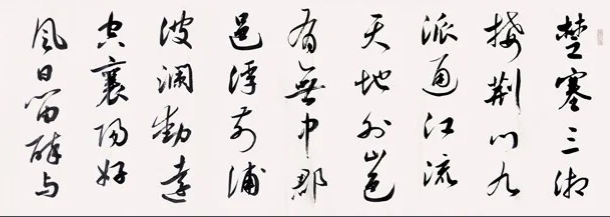 楚塞三湘
接荆门九
派通江流
天地外山色
有無中郡
邑浮前浦
波澜動遠
空襄陽好
風日留醉与